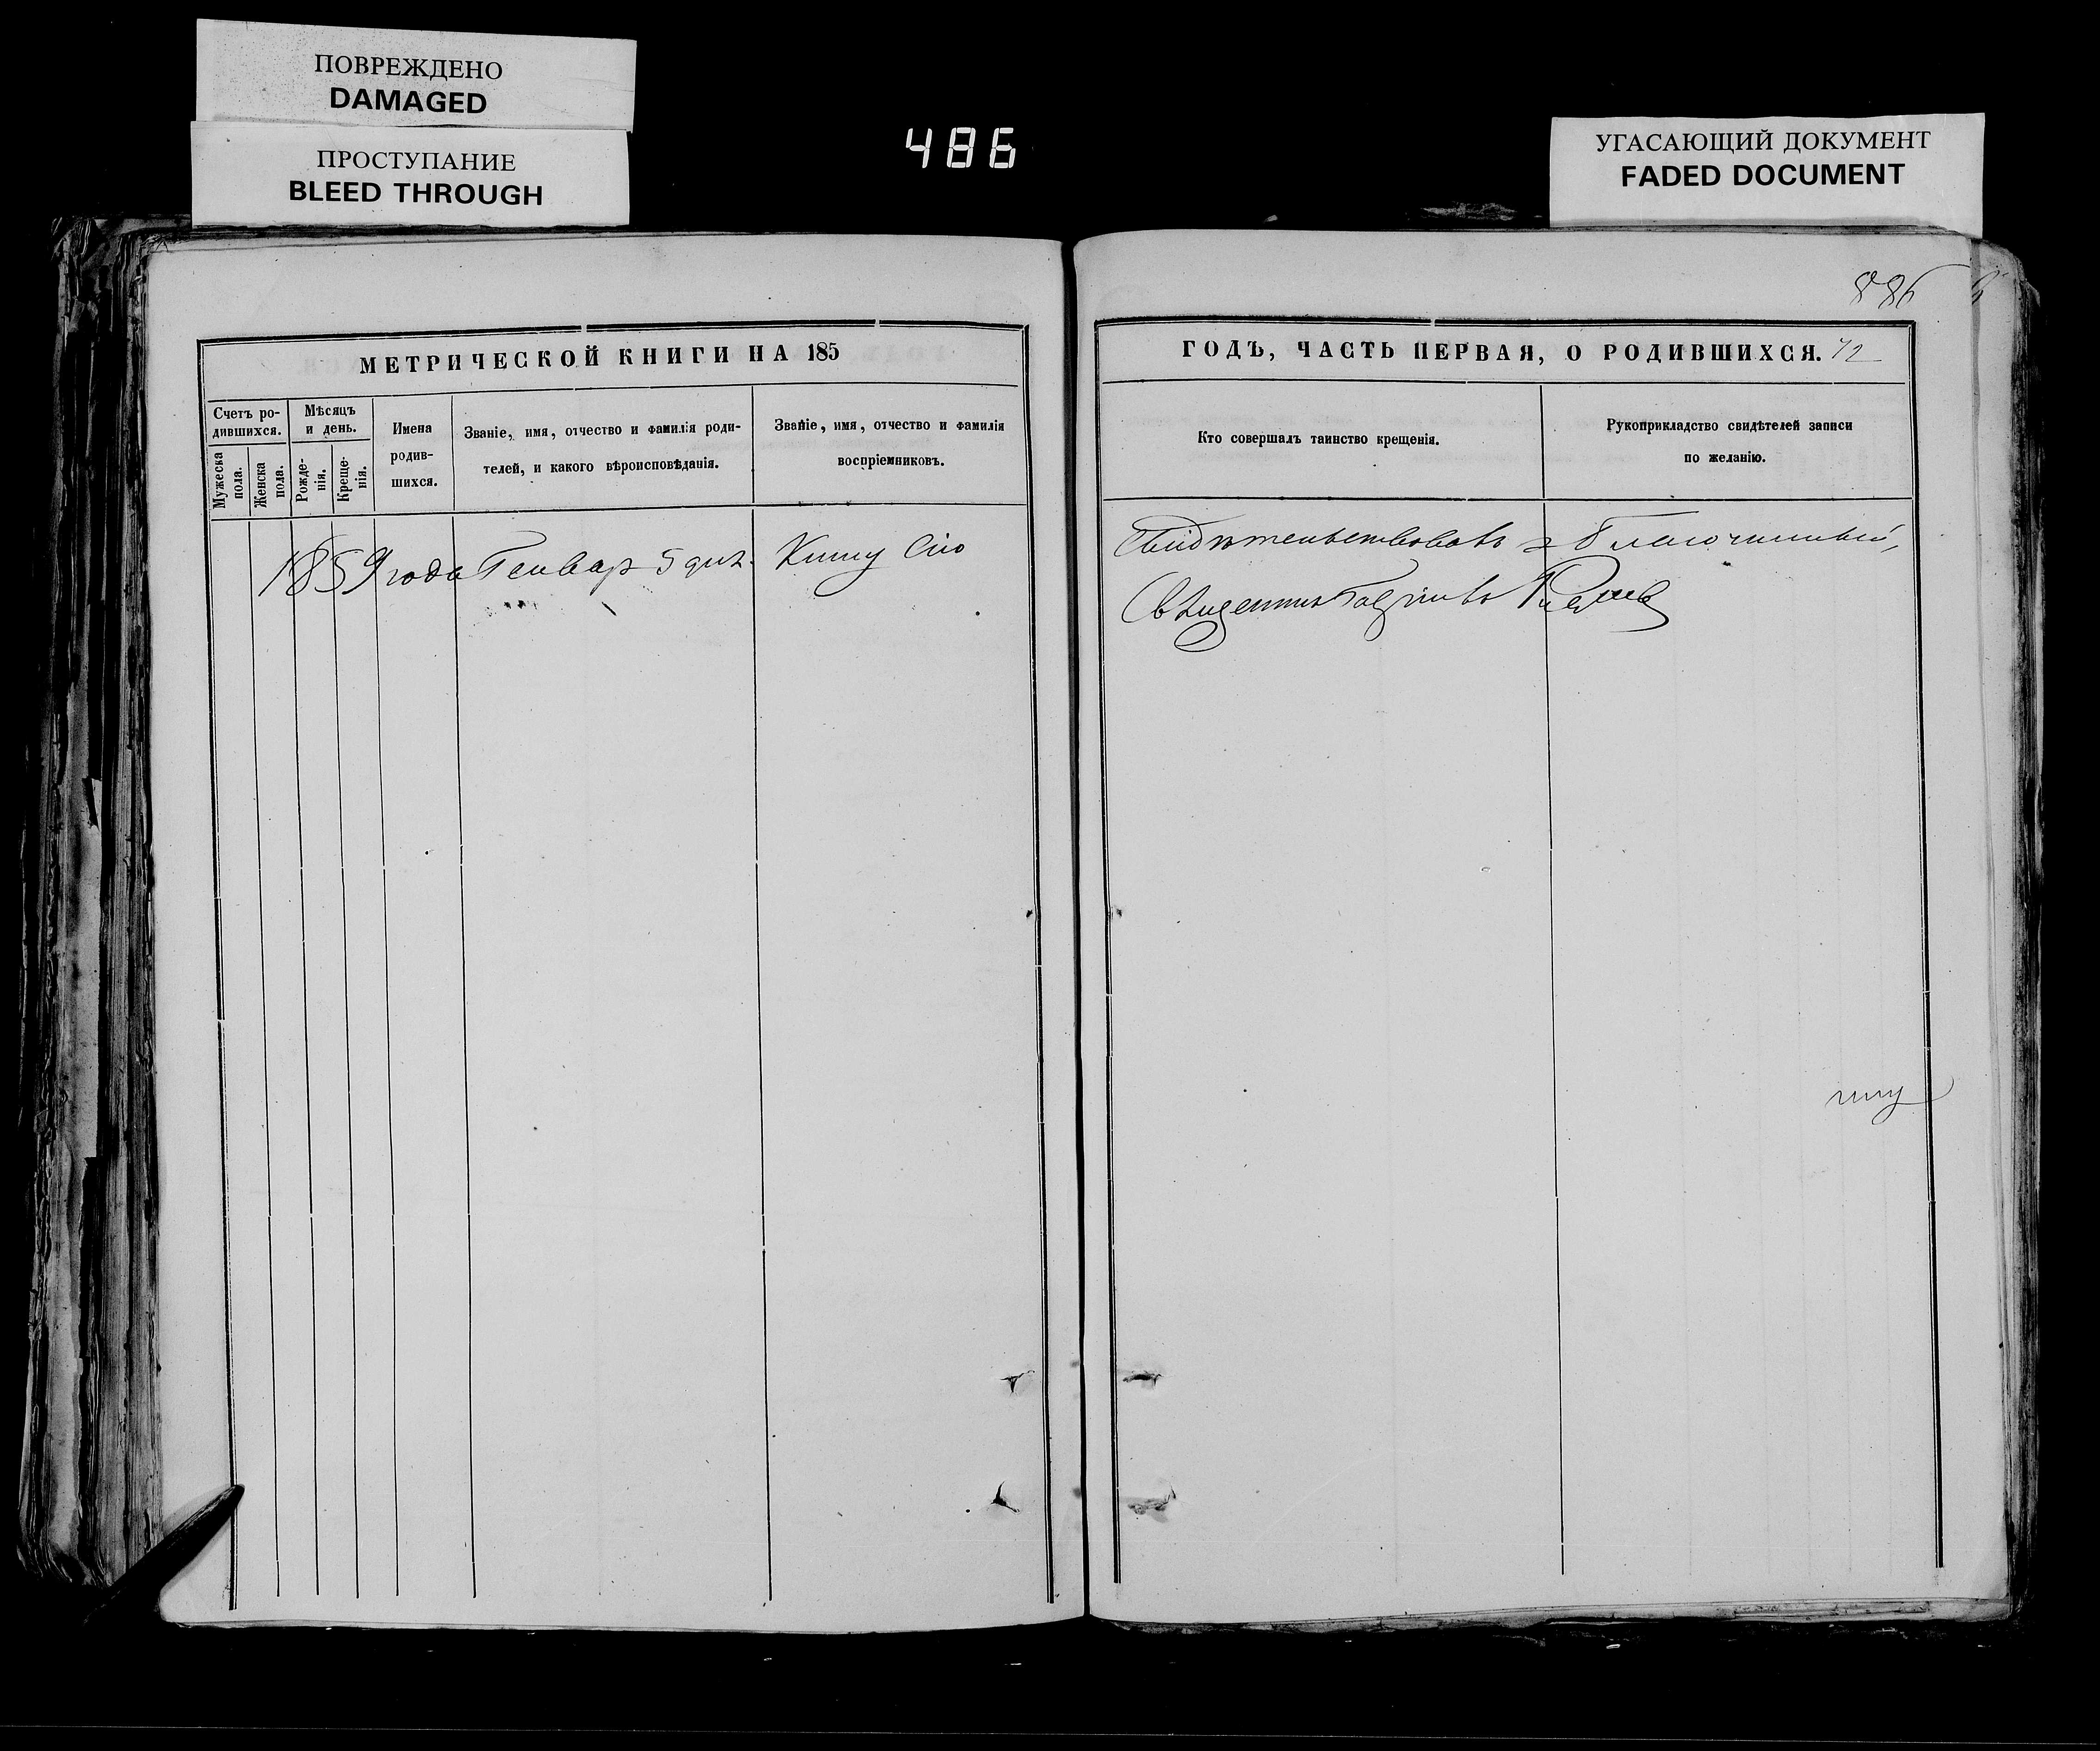 ПОВРЕЖДЕНО
DAMAGED
ПРОСТУПАНИЕ
BLEED THROUGH
486
УГАСАЮЩИЙ ДОКУМЕНТ
FADED DOCUMENT
МЕТРИЧЕСКОЙ КНИГИ НА 185
Счетъ ро-
дившихся.
Мужеска
пола.
Женска
пола.
Мѣсяцъ
и день.
Рожде-
нія.
Креще-
нія.
Имена
родив-
шихся.
Званіе, имя, отчество и фамилія роди-
телей, и какого вѣроисповѣданія.
Званіе, имя, отчество и фамилія
воспріемниковъ.
1859 года Генвар 5 дня Книгу сію
886
ГОДЪ, ЧАСТЬ ПЕРВАЯ, О РОДИВШИХСЯ. 42
Кто совершалъ таинство крещенія.
Рукоприкладство свидѣтелей записи
по желанію.
свидѣтельствовалъ Благочинный,
Священникъ